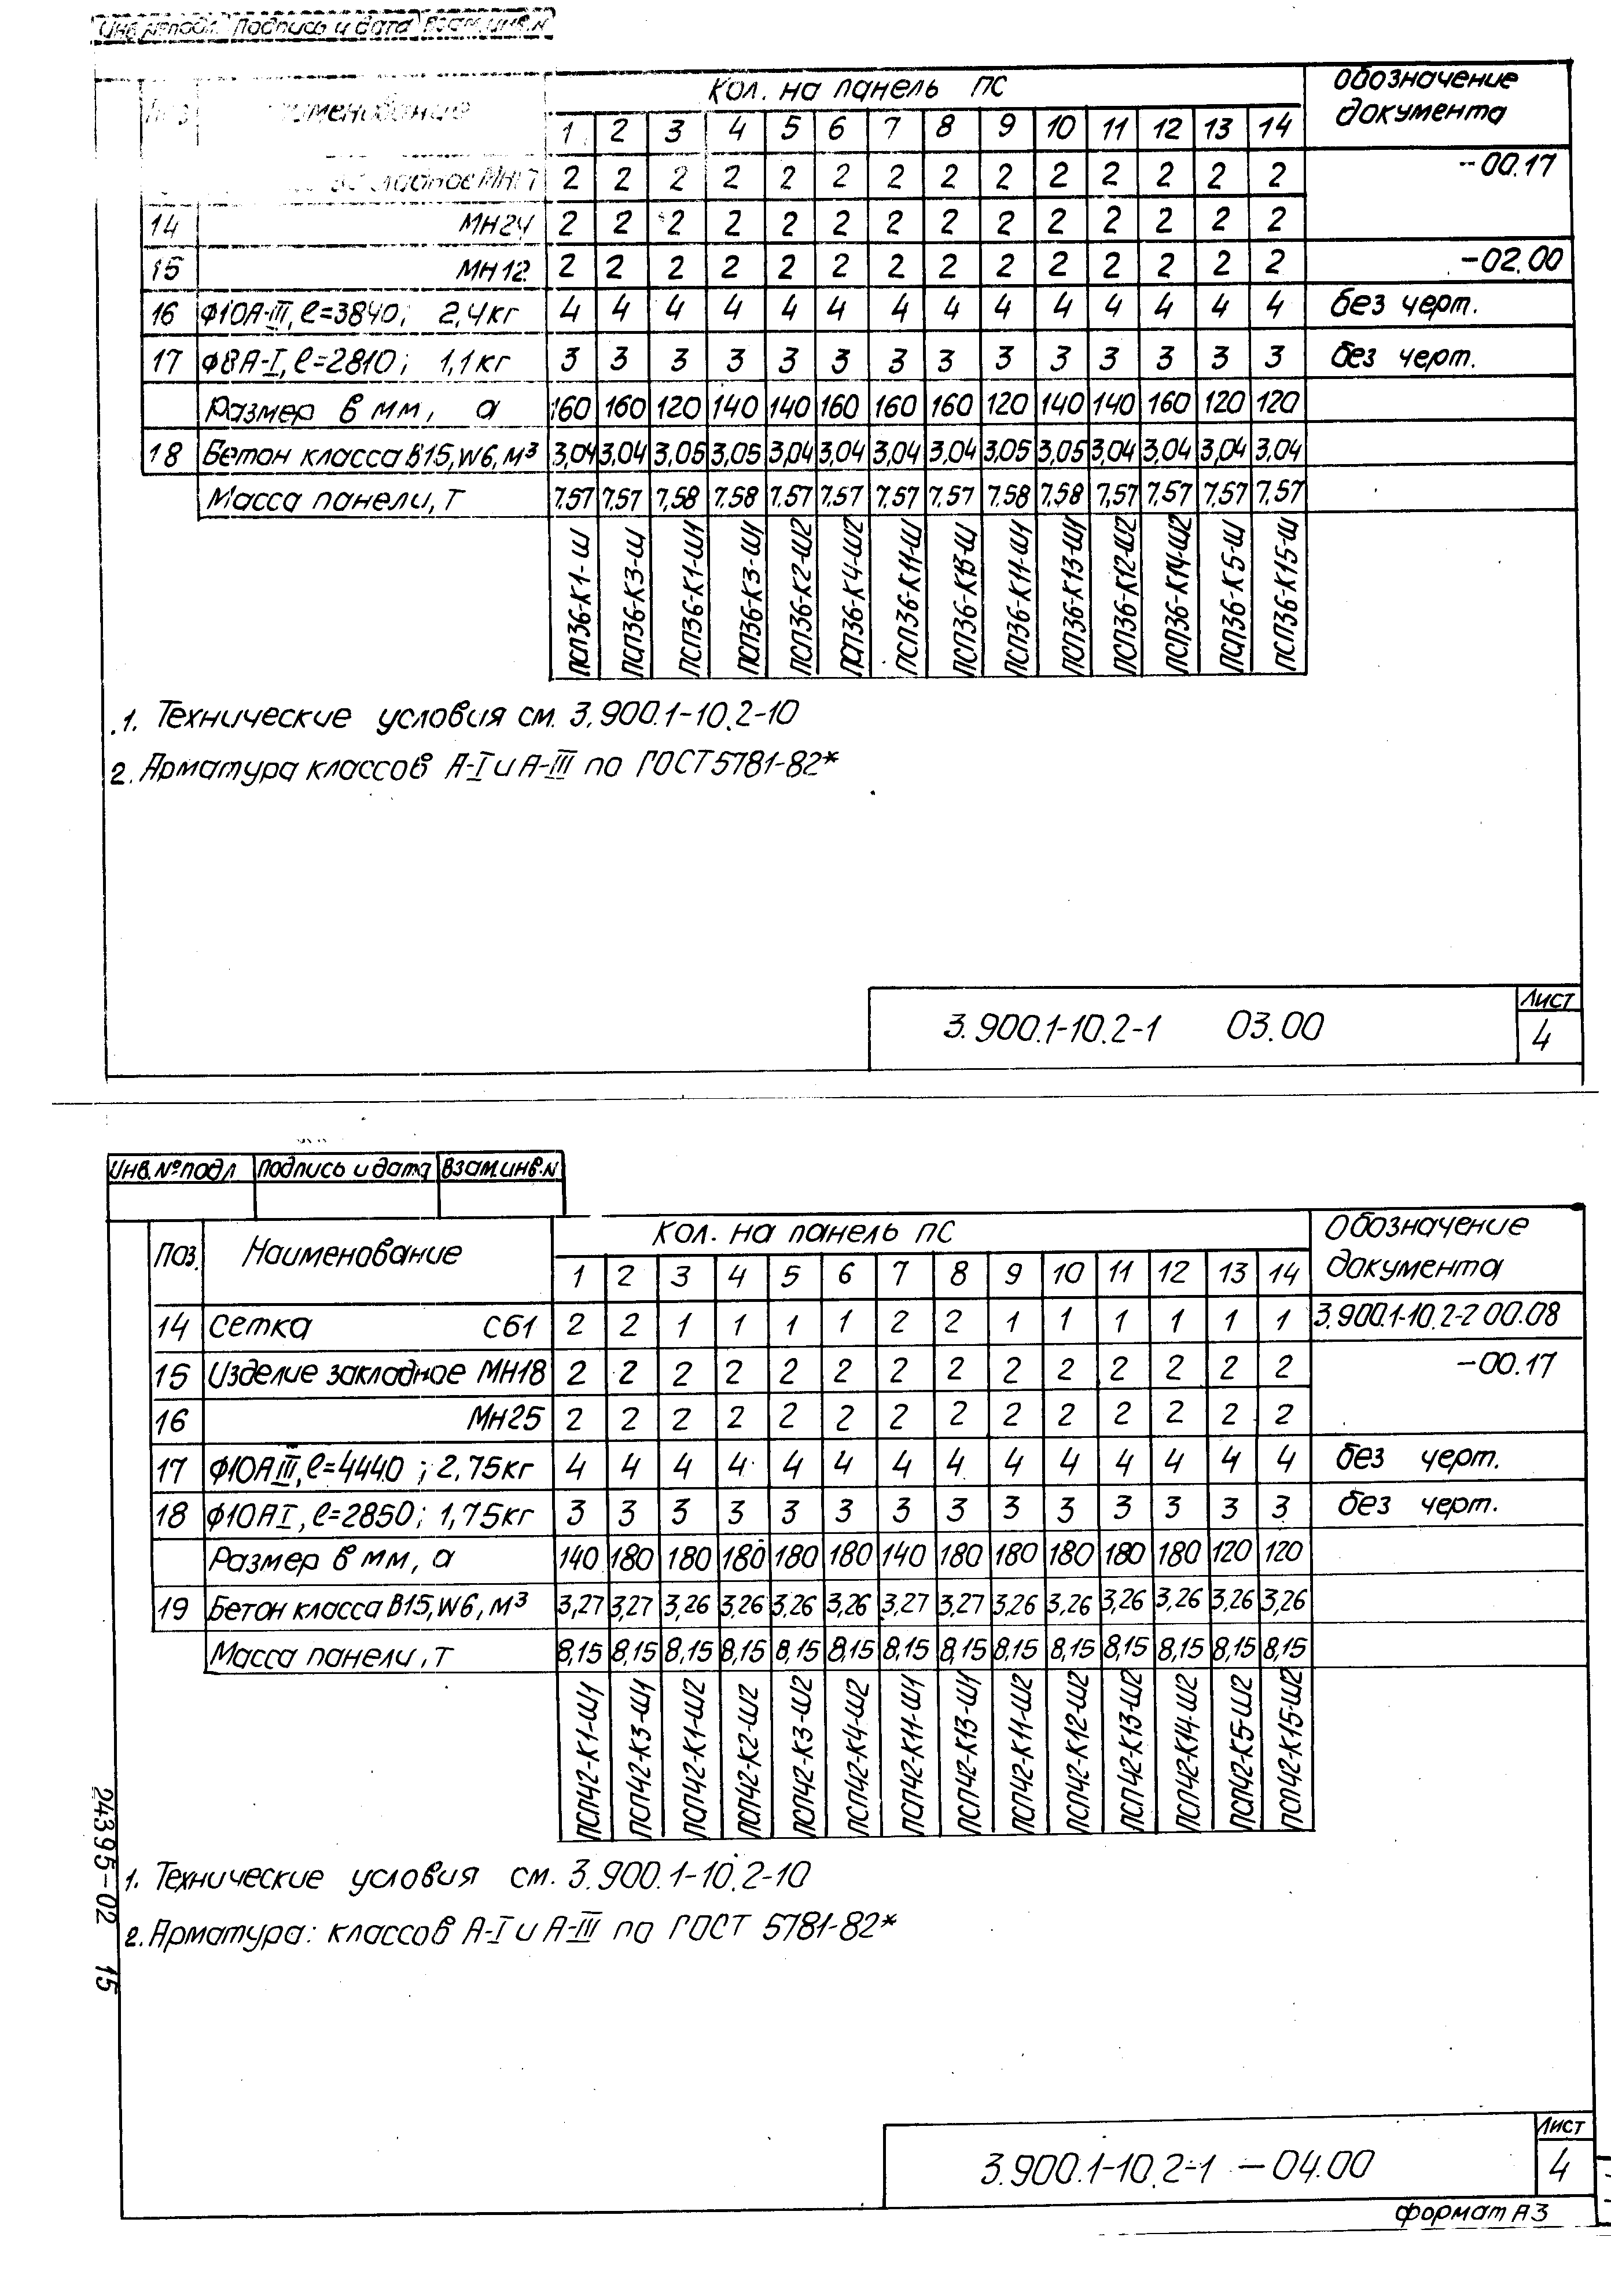 Инв.№подл. Подпись и дата Взам.инв.N
Поз. Наименование Кол. на панель ПС Обозначение документа
1 2 3 4 5 6 7 8 9 10 11 12 13 14
закладное МН17 2 2 2 2 2 2 2 2 2 2 2 2 2 2 -00.17
14 МН24 2 2 2 2 2 2 2 2 2 2 2 2 2 2
15 МН12 2 2 2 2 2 2 2 2 2 2 2 2 2 2 -02.00
16 Ф10А-III, ℓ=3840; 2,4кг 4 4 4 4 4 4 4 4 4 4 4 4 4 4 без черт.
17 Ф8А-I, ℓ=2810; 1,1кг 3 3 3 3 3 3 3 3 3 3 3 3 3 3 без черт.
Размер в мм, а 160 160 120 140 140 160 160 160 120 140 140 160 120 120
18 Бетон класса В15, W6, м³ 3,04 3,04 3,05 3,05 3,04 3,04 3,04 3,04 3,05 3,05 3,04 3,04 3,04 3,04
Масса панели, т 7,57 7,57 7,58 7,58 7,57 7,57 7,57 7,57 7,58 7,58 7,57 7,57 7,57 7,57
ПСП36-К1-Ш ПСП36-К3-Ш ПСП36-К1-Ш1 ПСП36-К3-Ш1 ПСП36-К2-Ш2 ПСП36-К4-Ш2 ПСП36-К11-Ш ПСП36-К13-Ш ПСП36-К11-Ш1 ПСП36-К13-Ш1 ПСП36-К12-Ш2 ПСП36-К14-Ш2 ПСП36-К5-Ш ПСП36-К15-Ш
1. Технические условия см. 3.900.1-10.2-10
2. Арматура классов А-I и А-III по ГОСТ 5781-82*
3.900.1-10.2-1 03.00
Лист
4
Инв.№подл. Подпись и дата Взам.инв.N
Поз. Наименование Кол. на панель ПС Обозначение документа
1 2 3 4 5 6 7 8 9 10 11 12 13 14
14 Сетка С61 2 2 1 1 1 1 2 2 1 1 1 1 1 1 3.900.1-10.2-2 00.08
15 Изделие закладное МН18 2 2 2 2 2 2 2 2 2 2 2 2 2 2 -00.17
16 МН25 2 2 2 2 2 2 2 2 2 2 2 2 2 2
17 Ф10АIII, ℓ=4440; 2,75кг 4 4 4 4 4 4 4 4 4 4 4 4 4 4 без черт.
18 Ф10АI, ℓ=2850; 1,75кг 3 3 3 3 3 3 3 3 3 3 3 3 3 3 без черт.
Размер в мм, а 140 180 180 180 180 180 140 180 180 180 180 180 120 120
19 Бетон класса В15, W6, м³ 3,27 3,27 3,26 3,26 3,26 3,26 3,27 3,27 3,26 3,26 3,26 3,26 3,26 3,26
Масса панели, т 8,15 8,15 8,15 8,15 8,15 8,15 8,15 8,15 8,15 8,15 8,15 8,15 8,15 8,15
ПСП42-К1-Ш1 ПСП42-К3-Ш1 ПСП42-К1-Ш2 ПСП42-К2-Ш2 ПСП42-К3-Ш2 ПСП42-К4-Ш2 ПСП42-К11-Ш1 ПСП42-К13-Ш1 ПСП42-К11-Ш2 ПСП42-К12-Ш2 ПСП42-К13-Ш2 ПСП42-К14-Ш2 ПСП42-К5-Ш2 ПСП42-К15-Ш2
1. Технические условия см. 3.900.1-10.2-10
2. Арматура: классов А-I и А-III по ГОСТ 5781-82*
24395-02 15
3.900.1-10.2-1 -04.00
Лист
4
формат А3